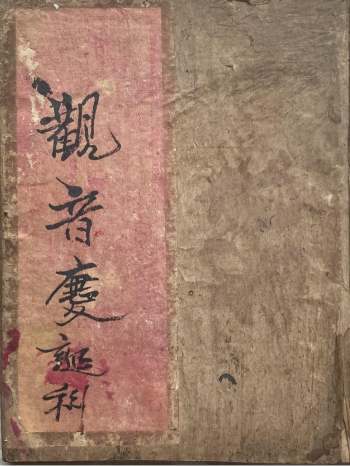 觀音慶誕科